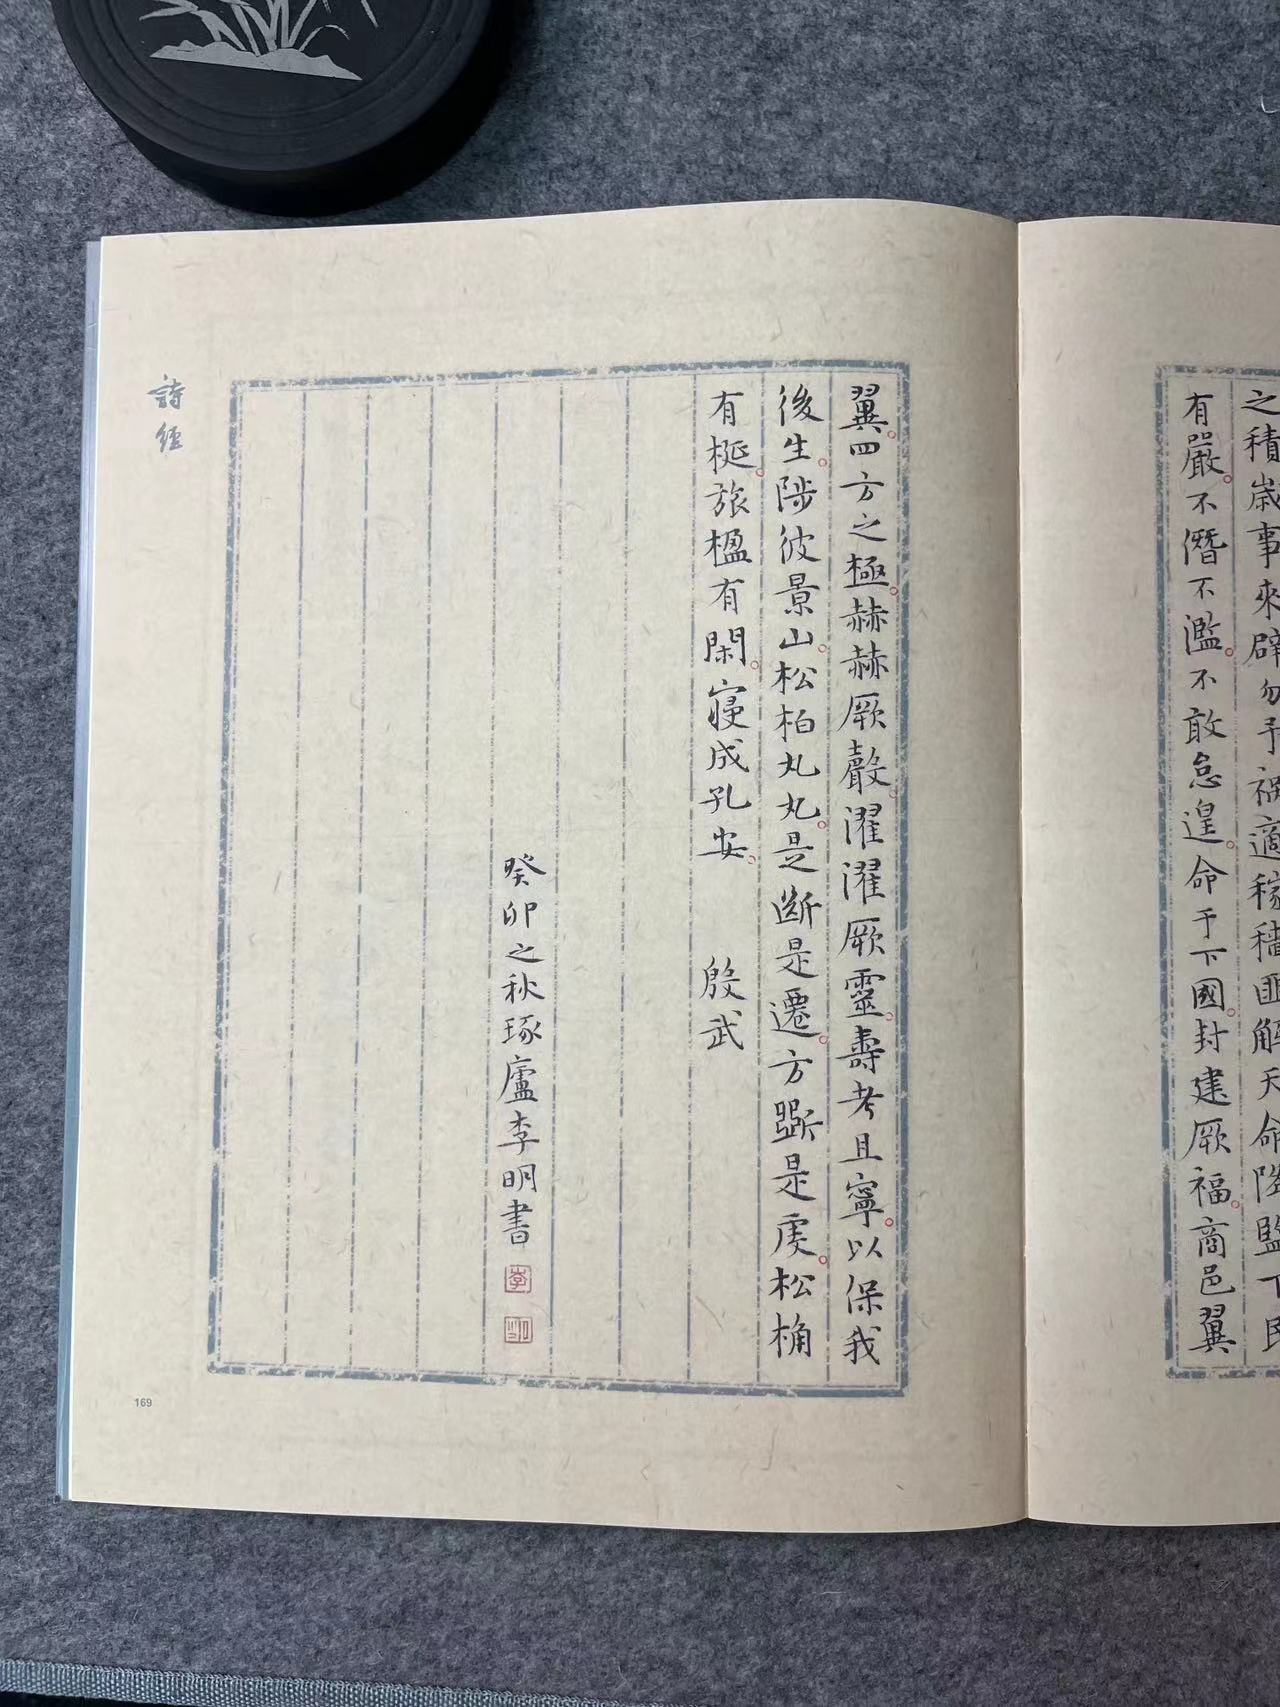 之積歲事來辟勿予禍適稼穡匪解天命降監下民
有嚴。不僭不濫。不敢怠遑。命于下國。封建厥福。商邑翼
翼。四方之極。赫赫厥聲。濯濯厥靈。壽考且寧。以保我
後生。陟彼景山。松柏丸丸。是斷是遷。方斲是虔。松桷
有梴。旅楹有閑。寢成孔安。 殷武
癸卯之秋琢廬李明書
李
明
詩經
169